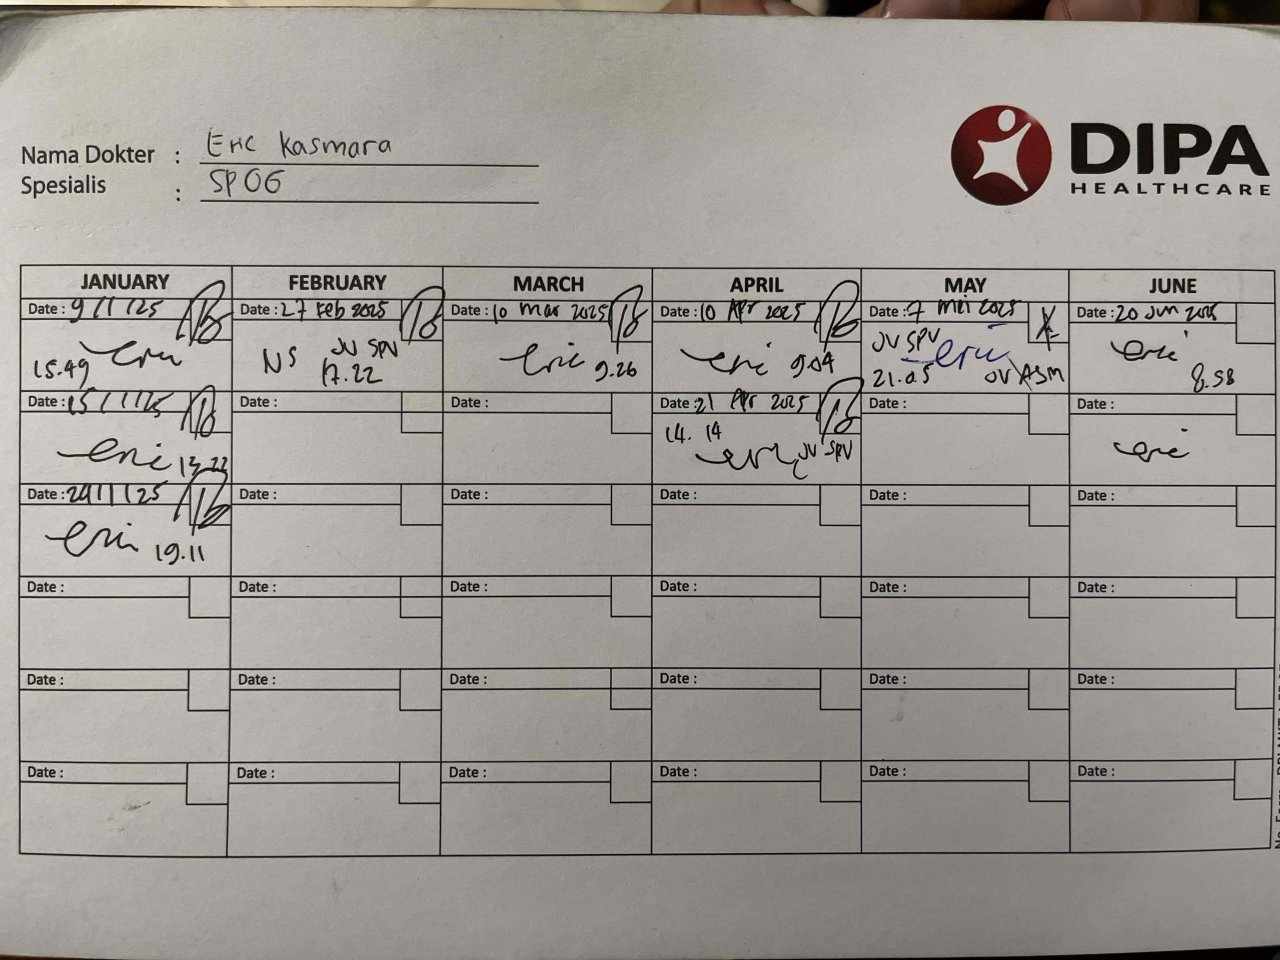 Nama Dokter : Eric Kasmara
Spesialis : SPOG
DIPA
HEALTHCARE
JANUARY FEBRUARY MARCH APRIL MAY JUNE
Date : 9/1/25 Date : 27 Feb 2025 Date : 10 Mar 2025 Date : 10 Apr 2025 Date : 7 Mei 2025 Date : 20 Jun 2025
15.49 eric NS JV SPV 17.22 eric 9.26 eric 9.04 JV SPV eric 21.05 JV ASM eric 8.58
Date : 15/1/25 Date : Date : Date : 21 Apr 2025 Date : Date :
eric 14.14 eric JV SPV eric
Date : 24/1/25 Date : Date : Date : Date : Date :
eric 19.11
Date : Date : Date : Date : Date : Date :
Date : Date : Date : Date : Date : Date :
Date : Date : Date : Date : Date : Date :